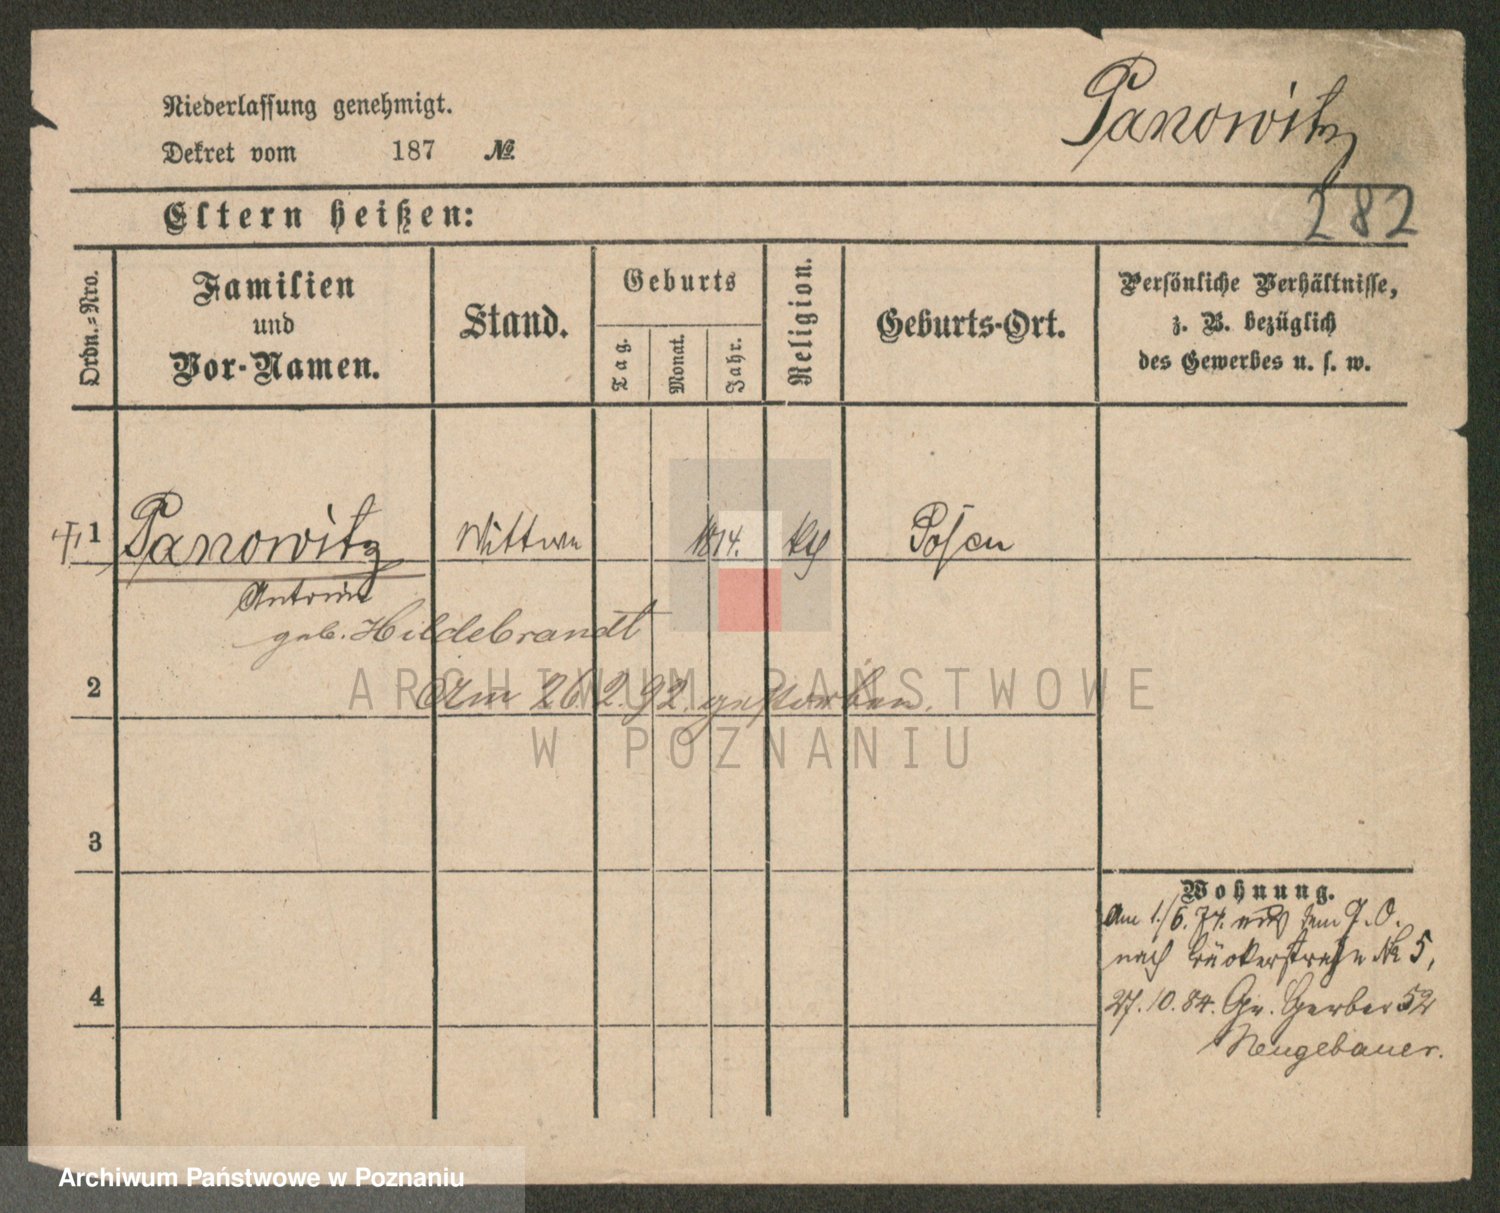 Niederlassung genehmigt.
Panowitz
Dekret vom 187 №
282
Eltern heißen:
Ordn.-Nro.
Familien
und
Vor-Namen.
Stand.
Geburts
Tag.
Monat.
Jahr.
Religion.
Geburts-Ort.
Persönliche Verhältnisse,
z. B. bezüglich
des Gewerbes u. s. w.
1 Panowitz Wittwe 1814. Posen
geb. Hildebrandt
2 Am 26.2.92. gestorben.
3
4
Wohnung.
Am 1./6. 74. aus dem
nach Bäckerstraße № 5,
27. 10. 84. Gr. Gerber 52
Neugebauer.
ARCHIWUM PAŃSTWOWE
W POZNANIU
Archiwum Państwowe w Poznaniu